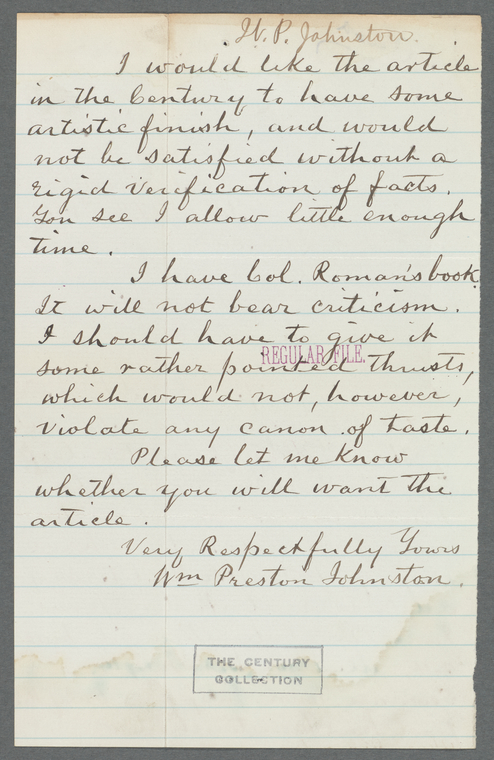 W. P. Johnston.
I would like the article
in the Century to have some
artistic finish, and would
not be satisfied without a
rigid verification of facts.
You see I allow little enough
time.
I have Col. Roman's book.
It will not bear criticism.
I should have to give it
REGULAR FILE.
some rather pointed thrusts,
which would not, however,
violate any canon of taste.
Please let me know
whether you will want the
article.
Very Respectfully Yours
Wm Preston Johnston.
THE CENTURY
COLLECTION